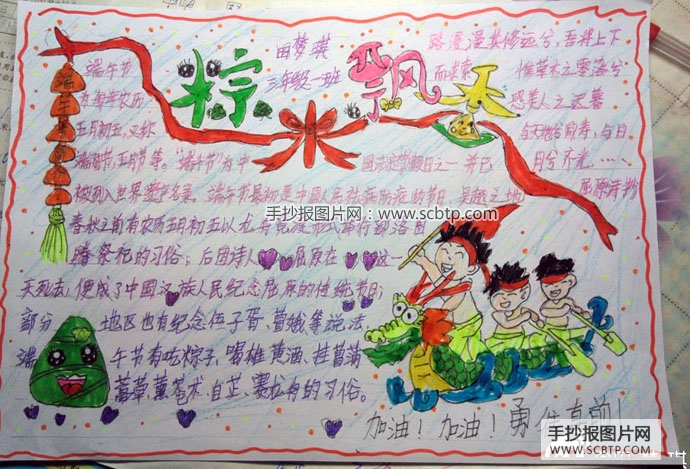 粽米飘香
田梦琪
三年级一班
路漫漫其修远兮,吾将上下
而求索 惟草木之零落兮
恐美人之迟暮
与天地兮同寿,与日
月兮齐光……
屈原诗抄
端午
端午节
为每年农历
五月初五,又称
端阳节,五月节等。“端午节”为中
国法定节假日之一 并已
被列入世界遗产名录,端午节最初是中国人民祛病防疫的节日,吴越之地
春秋之前有农历五月初五以龙舟竞渡形式举行部落图
腾祭祀的习俗;后因诗人屈原在这一
天死去,便成了中国汉族人民纪念屈原的传统节日;
部分地区也有纪念伍子胥、曹娥等说法
端午节有吃粽子、喝雄黄酒、挂菖蒲
蒿草、薰苍术、白芷、赛龙舟的习俗。
加油!加油!勇往直前!
手抄报图片网:www.scbtp.com
手抄报图片网
WWW.SCBTP.COM